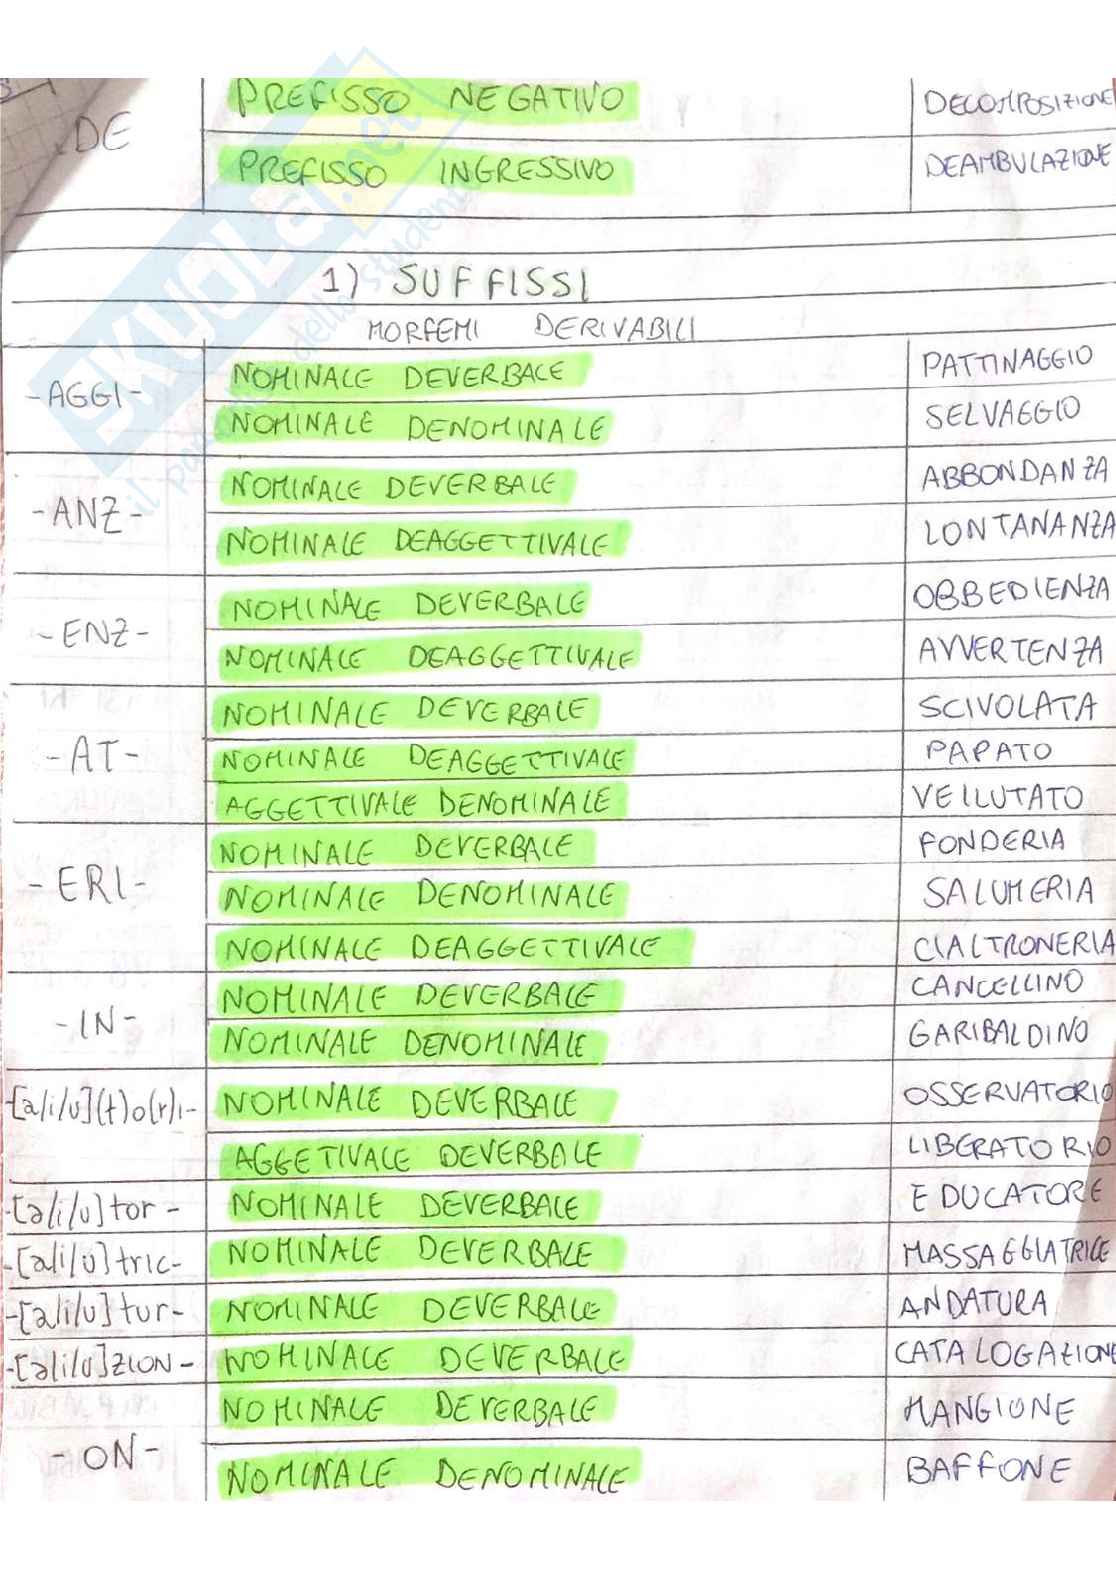 DE
PREFISSO NEGATIVO DECOMPOSIZIONE
PREFISSO INGRESSIVO DEAMBULAZIONE
1) SUFFISSI
MORFEMI DERIVABILI
-AGGI-
NOMINALE DEVERBALE PATTINAGGIO
NOMINALE DENOMINALE SELVAGGIO
-ANZ-
NOMINALE DEVERBALE ABBONDANZA
NOMINALE DEAGGETTIVALE LONTANANZA
-ENZ-
NOMINALE DEVERBALE OBBEDIENZA
NOMINALE DEAGGETTIVALE AVVERTENZA
-AT-
NOMINALE DEVERBALE SCIVOLATA
NOMINALE DEAGGETTIVALE PAPATO
AGGETTIVALE DENOMINALE VELLUTATO
-ERI-
NOMINALE DEVERBALE FONDERIA
NOMINALE DENOMINALE SALUMERIA
NOMINALE DEAGGETTIVALE CIALTRONERIA
-IN-
NOMINALE DEVERBALE CANCELLINO
NOMINALE DENOMINALE GARIBALDINO
-[a/i/u](t)o(r)i- NOMINALE DEVERBALE OSSERVATORIO
AGGETIVALE DEVERBALE LIBERATORIO
-[a/i/u]tor- NOMINALE DEVERBALE EDUCATORE
-[a/i/u]tric- NOMINALE DEVERBALE MASSAGGIATRICE
-[a/i/u]tur- NOMINALE DEVERBALE ANDATURA
-[a/i/u]ZION- NOMINALE DEVERBALE CATALOGAZIONE
-ON-
NOMINALE DEVERBALE MANGIONE
NOMINALE DENOMINALE BAFFONE
SKUOLA.net